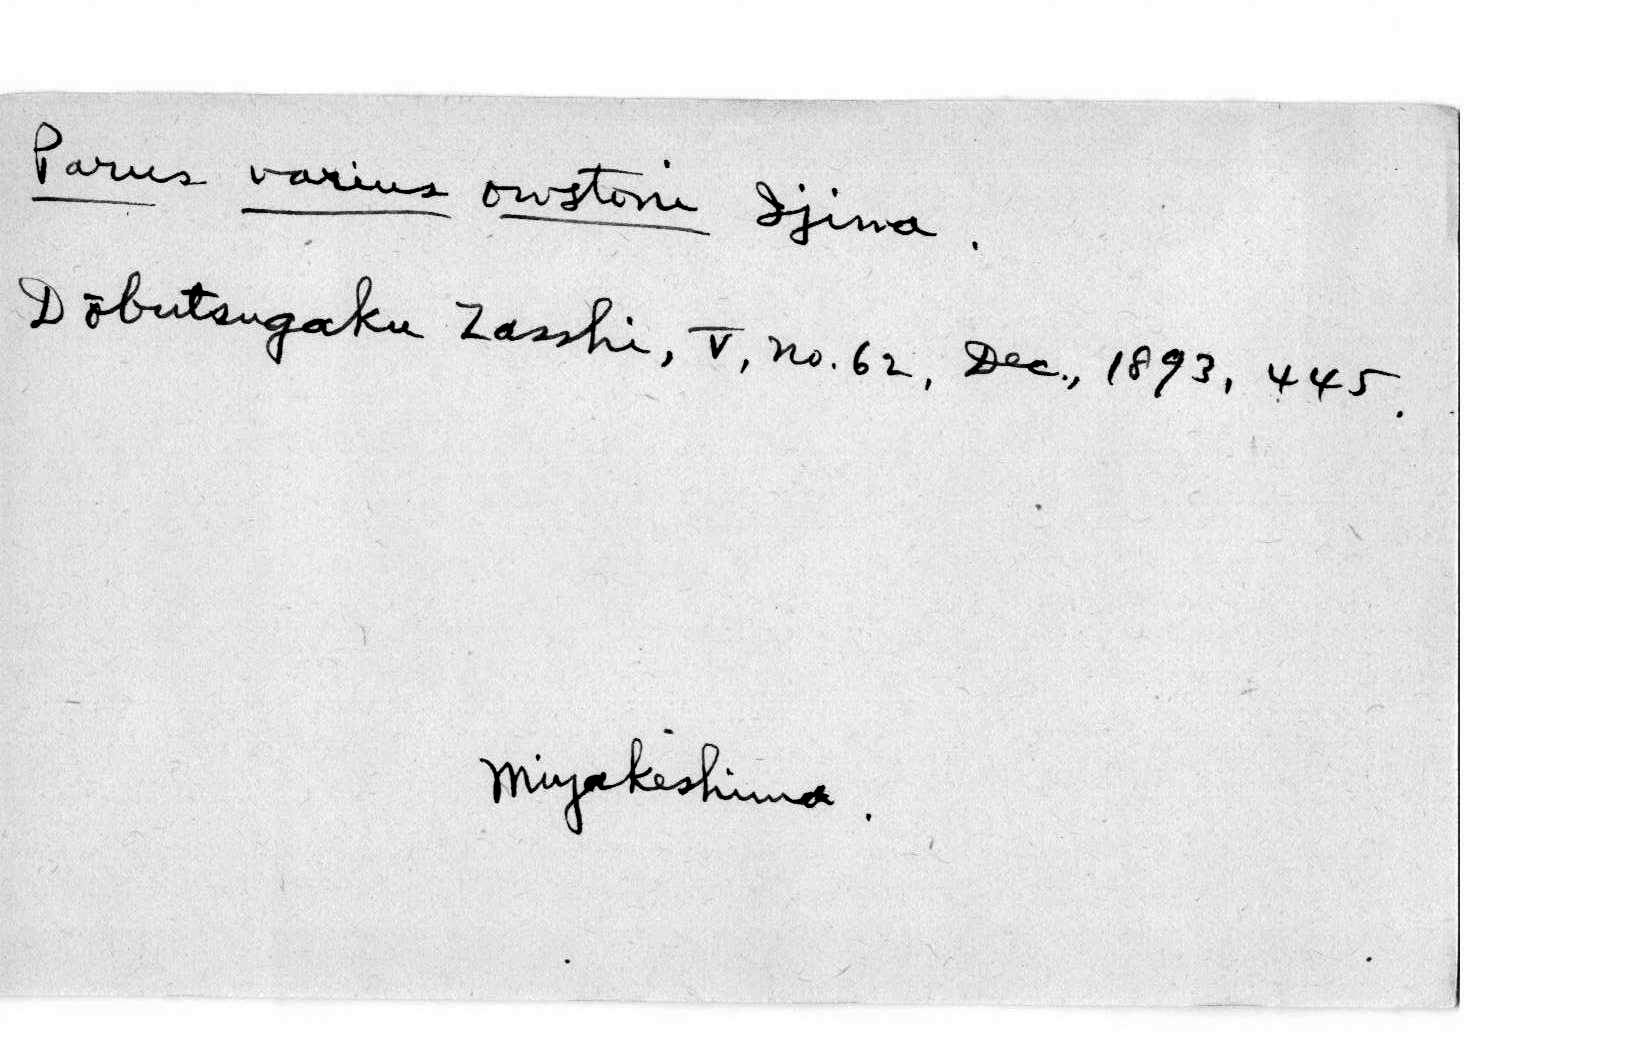 Parus varius owstoni Ijima.
Dōbutsugaku Zasshi, V, no. 62, Dec., 1893, 445.
Miyakeshima.